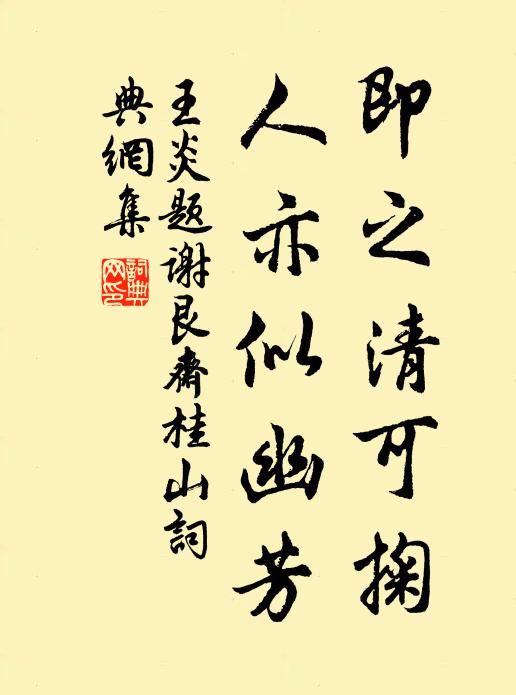 即之清可掬
人亦似幽芳
王炎題謝艮齋桂山詞
典網集
詞典
网印